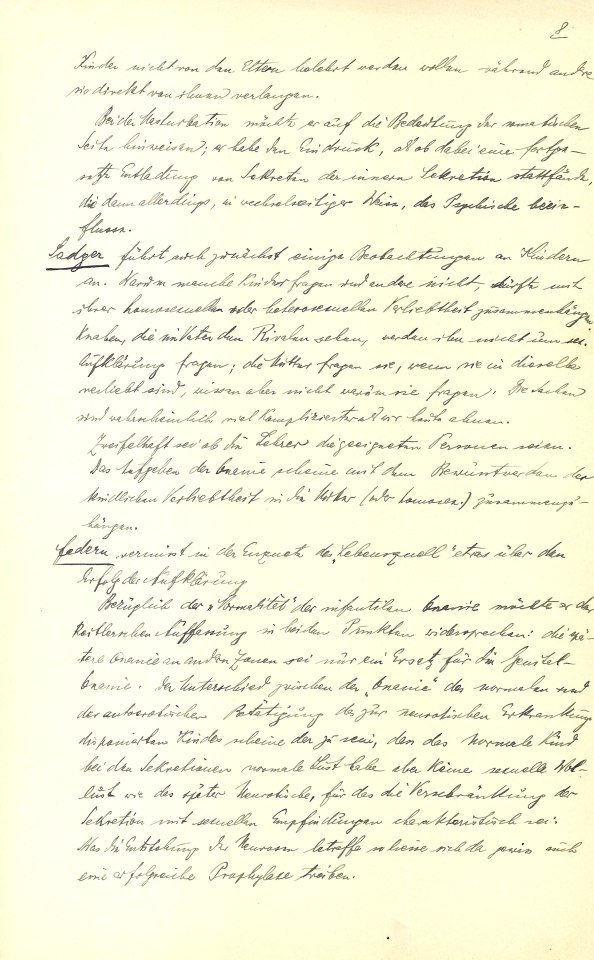 8
Kinder nicht von den Eltern belehrt werden wollen während andere
sie direkt von ihnen verlangen.
Bei der Masturbation möchte er auf die Bedeutung der somatischen
Seite hinweisen; er habe den Eindruck, als ob dabei eine fortge-
setzte Entladung von Sekreten der innern Sekretion stattfände,
die dann allerdings, in wechselseitiger Weise, das Psychische beein-
flussen.
Sadger führt noch zunächst einige Beobachtungen an Kindern
an. Warum manche Kinder fragen und andere nicht, dürfte mit
ihrer homosexuellen oder heterosexuellen Verliebtheit zusammenhängen.
Knaben, die im Vater den Rivalen sehen, werden ihn nicht um sex.
Aufklärung fragen; die Mutter fragen sie, wenn sie in dieselbe
verliebt sind, wissen aber nicht warum sie fragen. Die Sachen
sind wahrscheinlich viel komplizierter als wir heute ahnen.
Zweifelhaft sei ob die Lehrer die geeigneten Personen seien.
Das Aufgeben der Onanie scheine mit dem Bewusstwerden der
kindlichen Verliebtheit in die Mutter (oder homosex.) zusammenzu-
hängen.
Federn vermisst in der Enquete des „Lebensquell" etwas über den
Erfolg der Aufklärung
Bezüglich der „Normalität" der infantilen Onanie möchte er der
Reitlerschen Auffassung in beiden Punkten widersprechen: die spä-
tere Onanie an andern Zonen sei nur ein Ersatz für die Genital-
Onanie. Der Unterschied zwischen der „Onanie" des normalen und
der autoerotischen Betätigung des zur neurotischen Erkrankung
disponierten Kindes scheine der zu sein, dass das normale Kind
bei den Sekretionen normale Lust habe aber keine sexuelle Wol-
lust wie das später Neurotische, für das die Verschränkung der
Sekretion mit sexuellen Empfindungen charakteristisch sei.
Was die Entstehung der Neurosen betreffe so liesse sich da gewiss auch
eine erfolgreiche Prophylaxe treiben.